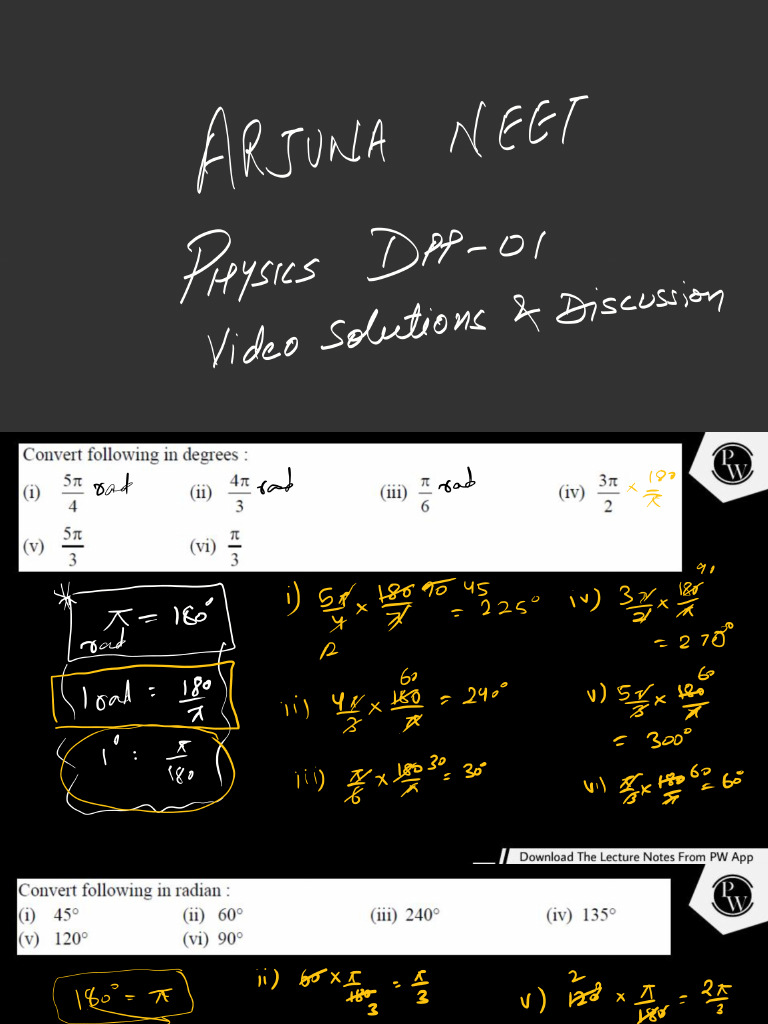 ARJUNA NEET
PHYSICS DPP-01
Video Solutions & Discussion
Convert following in degrees :
(i) 5π/4 rad (ii) 4π/3 rad (iii) π/6 rad (iv) 3π/2 × 180/π
(v) 5π/3 (vi) π/3
PW
* π rad = 180°
1 rad = 180/π
1° : π/180
i) 5π/4 × 180/π 90 45 = 225°
2
ii) 4π/3 × 180/π 60 = 240°
iii) π/6 × 180/π 30 = 30°
iv) 3π/2 × 180/π 90 = 270°
v) 5π/3 × 180/π 60
= 300°
vi) π/3 × 180/π 60 = 60°
Download The Lecture Notes From PW App
PW
Convert following in radian :
(i) 45° (ii) 60° (iii) 240° (iv) 135°
(v) 120° (vi) 90°
180° = π
ii) 60 × π/180 3 = π/3
v) 2 120 × π/180 = 2π/3